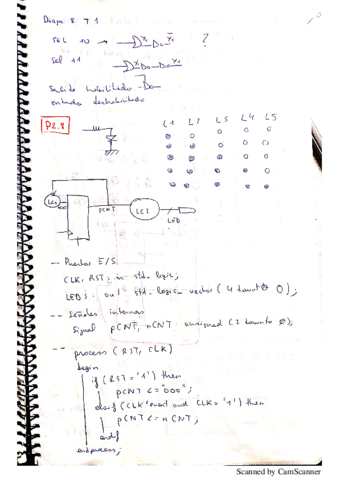 SEL 10 → X1 Y1 ?
Sel 11
Salida habilitada
entrada deshabilitada
P2.3
L1 L2 L3 L4 L5
LC1
pCNT LC2
LED
-- Puertos E/S.
CLK, RST: in std_logic;
LEDs: out std_logic_vector (4 downto 0);
-- Señales internas
Signal pCNT, nCNT: unsigned (3 downto 0);
-- process (RST, CLK)
begin
if (RST = '1') then
pCNT <= "000";
elsif (CLK'event and CLK = '1') then
pCNT <= nCNT;
endif
end process;
Scanned by CamScanner